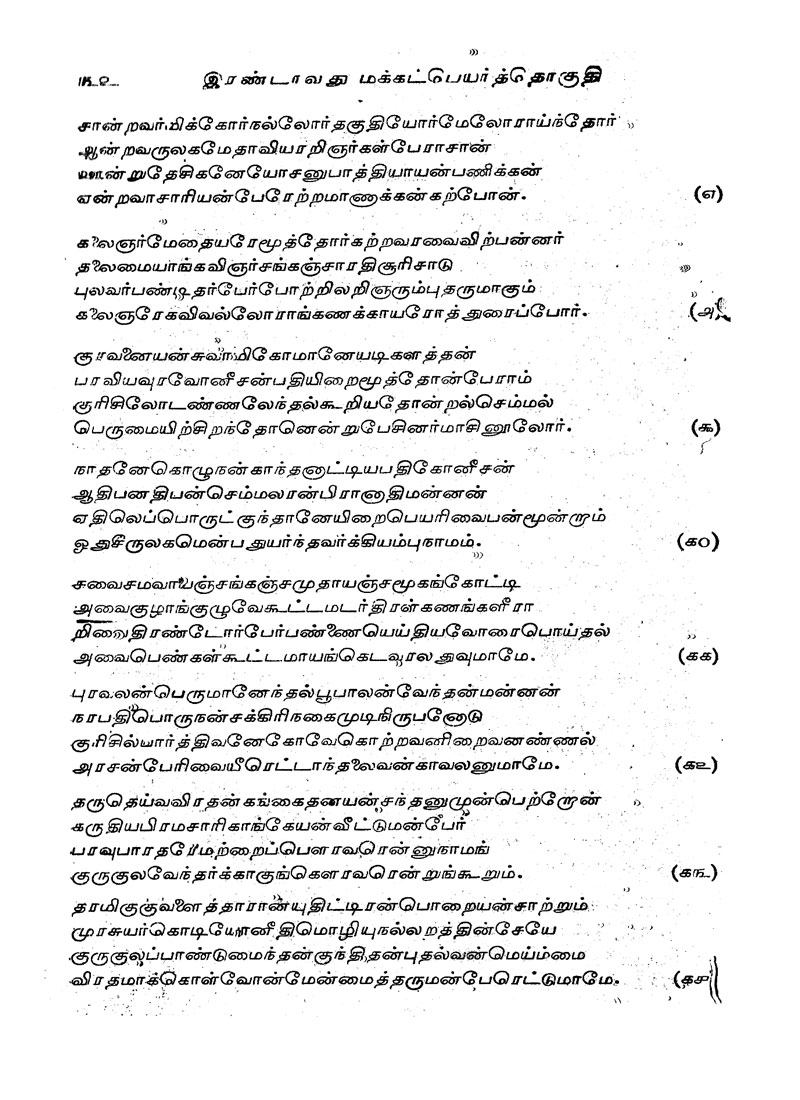 ௩௨ இரண்டாவது மக்கட்பெயர்த்தொகுதி
சான்றவர்மிக்கோர்நல்லோர்தகுதியோர்மேலோராய்ந்தோர்
ஆன்றவருலகமேதாவியாரறிஞர்கள்பேராசான்
ஊன்றுதேசிகனேயோசனுபாத்தியாயன்பணிக்கன்
ஏன்றவாசாரியன்பேரேற்றமாணாக்கன்கற்போன். (எ)
கலைஞர்மேதையரேமூத்தோர்கற்றவரவைவிற்பன்னர்
தலைமையர்ங்கவிஞர்சங்கஞ்சாரதிசூரிசாடு
புலவர்பண்டிதர்பேர்போற்றிலறிஞரும்புதருமாகும்
கலைஞரேகவிவல்லோராங்கணக்காயரோத்துரைப்போர். (அ)
குரவனையன்சுவாமிகோமானேயடிகளத்தன்
பரவியவுரவோனீசன்பதியிறைமூத்தோன்பேராம்
குரிசிலோடண்ணலேந்தல்கூறியதோன்றல்செம்மல்
பெருமையிற்சிறந்தோனென்றுபேசினர்மாசினூலோர். (௯)
நாதனேகொழுநன்காந்தனாட்டியபதிகோனீசன்
ஆதிபனதிபன்செம்மலரன்பிரானாதிமன்னன்
ஏதிலெப்பொருட்குந்தானேயிறைபெயரிவைபன்மூன்றும்
ஓதுசீருலகமென்பதுயர்ந்தவர்க்கியம்புநாமம். (க௦)
சவைசமவாயஞ்சங்கஞ்சமுதாயஞ்சமூகங்கோட்டி
அவைகுழாங்குழுவேகூட்டமடர்திரள்கணங்களீரா
றிவைதிரண்டோர்பேர்பண்ணையெய்தியவோரைபொய்தல்
அவைபெண்கள்கூட்டமாயங்கெடவுரலதுவுமாமே. (கக)
புரவலன்பெருமானேந்தல்பூபாலன்வேந்தன்மன்னன்
நரபதிபொருநன்சக்கிரிநகைமுடிநிருபனோடு
குரிசில்பார்த்திவனேகோவேகொற்றவனிறைவனண்ணல்
அரசன்பேரிவையீரெட்டாந்தலைவன்காவலனுமாமே. (க௨)
தருதெய்வவிரதன்கங்கைதனயன்சந்தனுமுன்பெற்றோன்
கருதியபிரமசாரிகாங்கேயன்வீட்டுமன்பேர்
பரவுபாரதரேமற்றைப்பௌரவரென்னுநாமங்
குருகுலவேந்தர்க்காகுங்கௌரவரென்றுங்கூறும். (க௩)
தாமிகுகுவளைத்தாரான்யுதிட்டிரன்பொறையன்சாற்றும்
முரசுயர்கொடியோனீதிமொழியுநல்லறத்தின்சேயே
குருகுலப்பாண்டுமைந்தன்குந்திதன்புதல்வன்மெய்ம்மை
விரதமாக்கொள்வோன்மேன்மைத்தருமன்பேரெட்டுமாமே. (க௪)